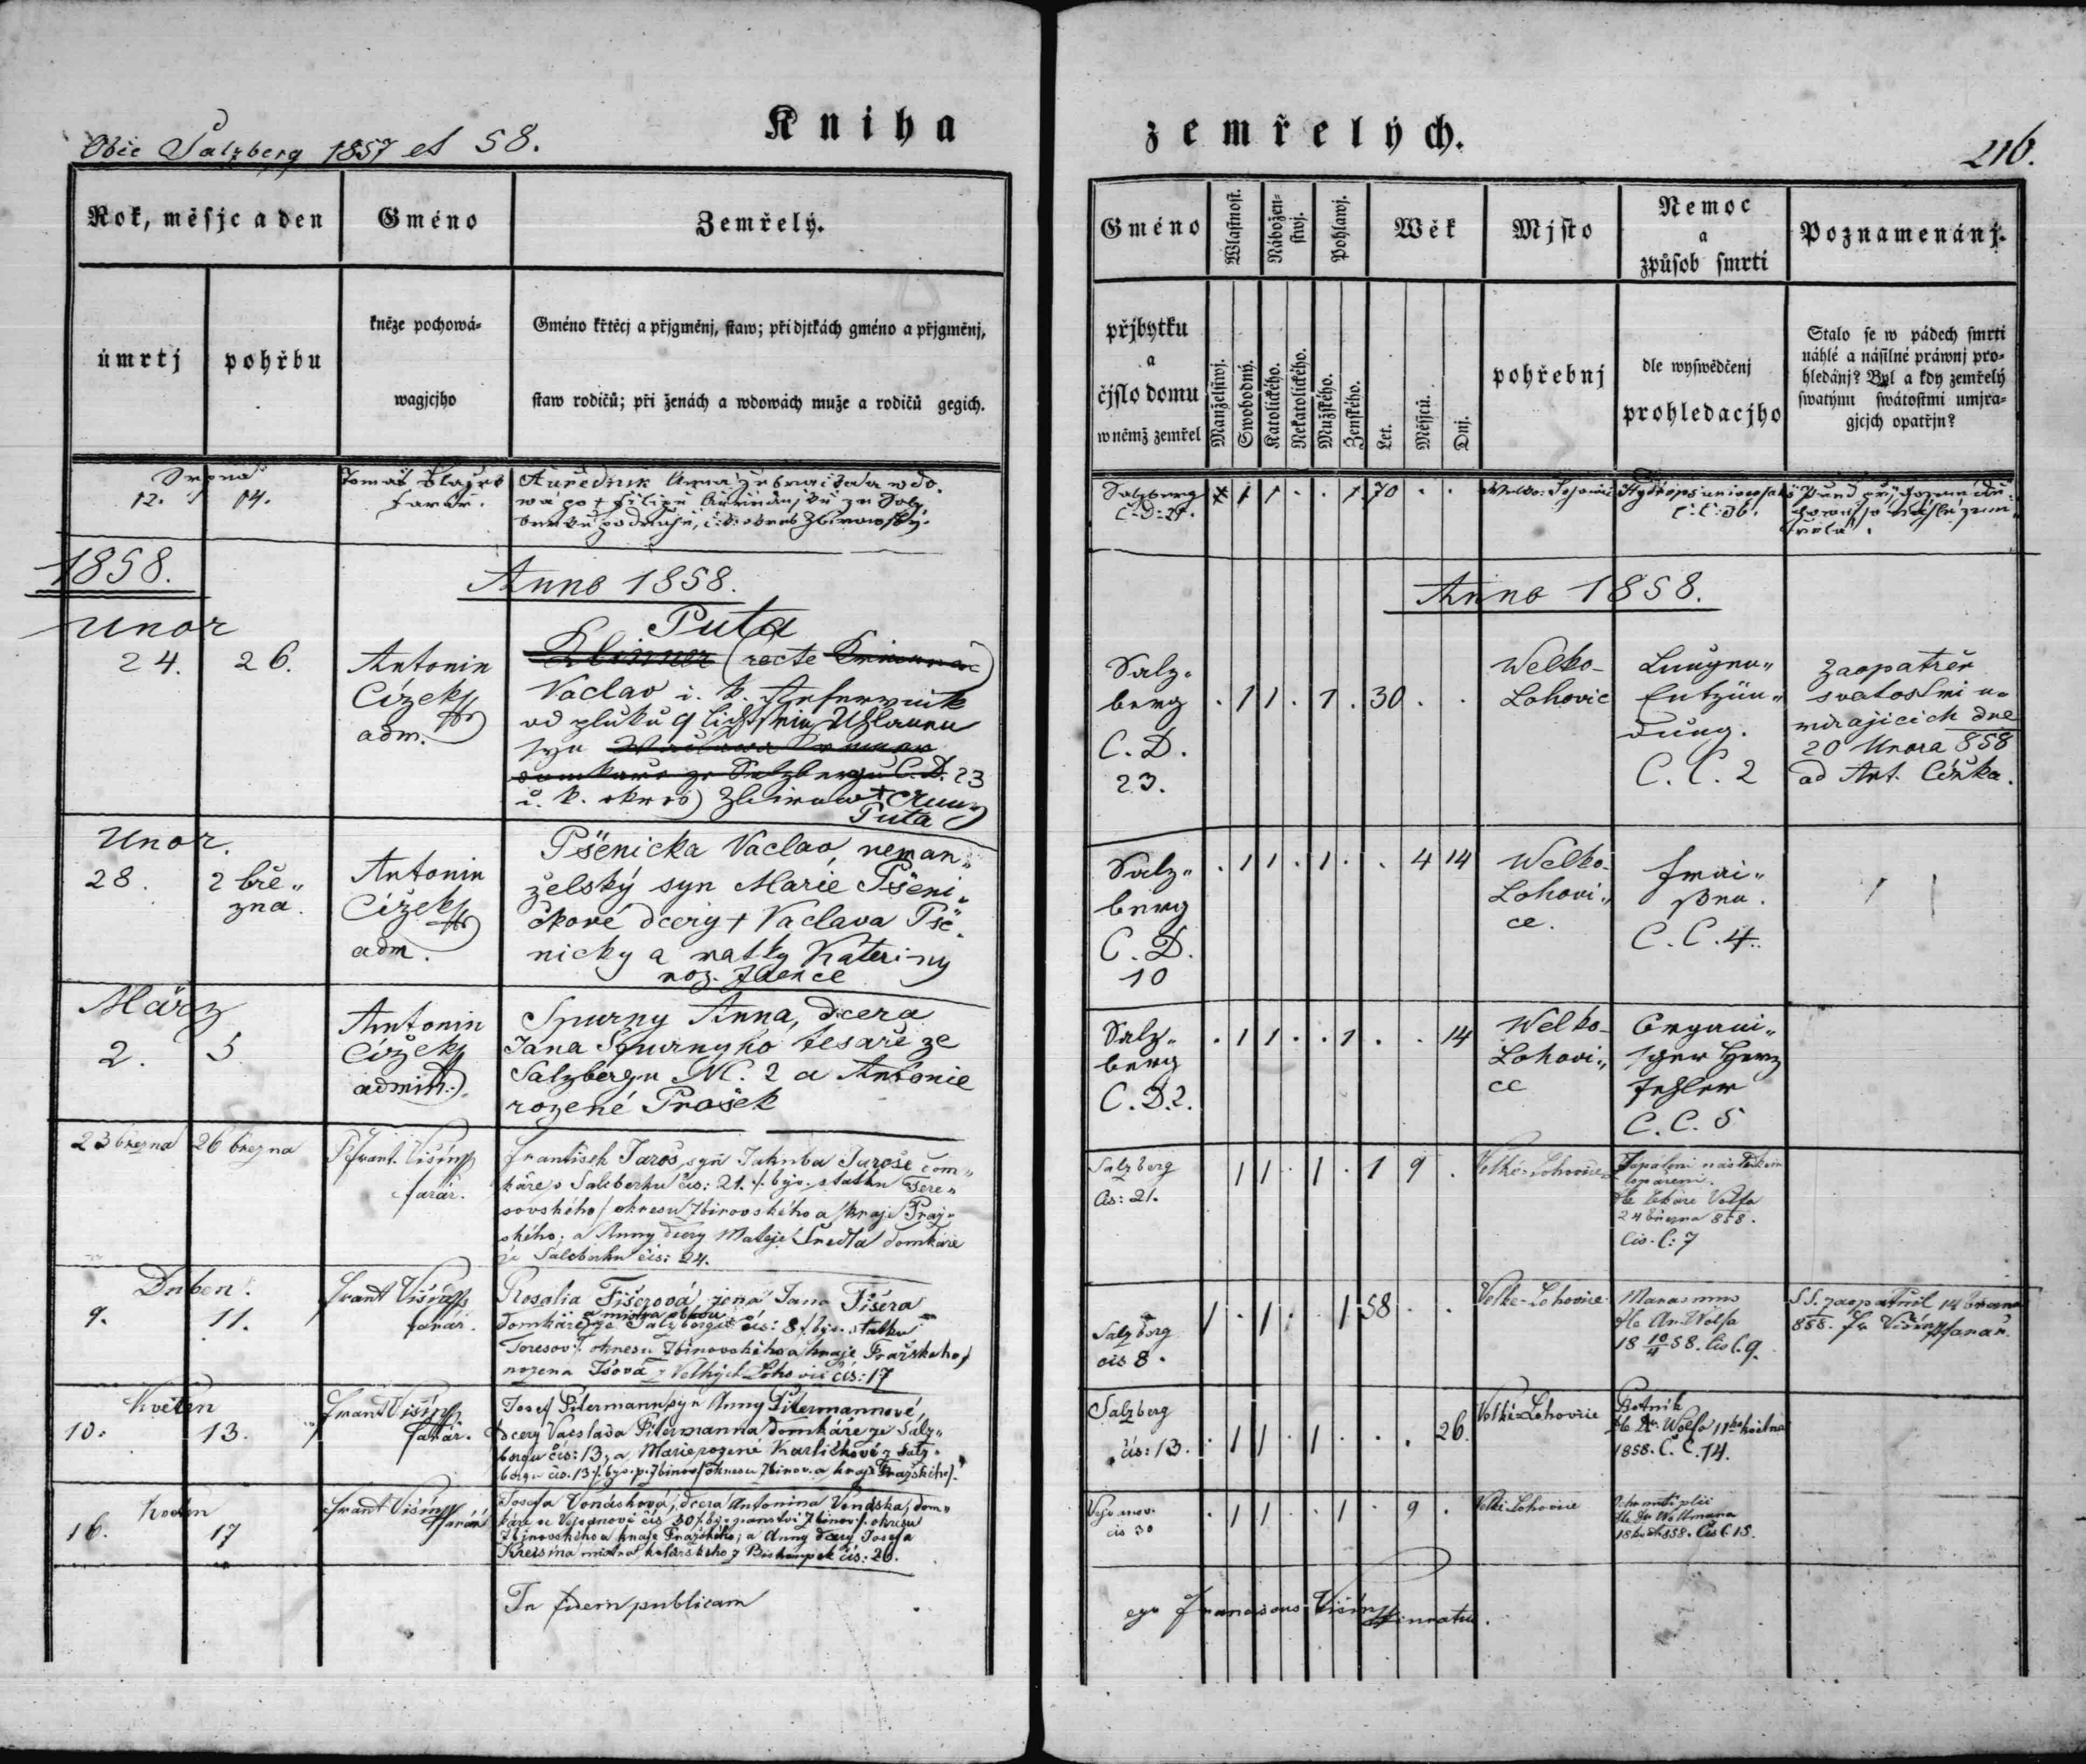 Obec Salzberg 1857 et 58.
Kniha
zemřelých.
216.
Rok, měsjc a den
Gméno
Zemřelý.
úmrtj
pohřbu
kněze pochowá-
wagjcjho
Gméno křtěcj a přjgměnj, staw; při djtkách gméno a přjgměnj,
staw rodičů; při ženách a wdowách muže a rodičů gegich.
Gméno
přjbytku
a
čjslo domu
w němž zemřel
Wlastnost.
Manželstwj.
Swobodný.
Nábožen-
stwj.
Katolického.
Nekatolického.
Pohlawj.
Mužského.
Ženského.
Wěk
Let.
Měsjců.
Dnj.
Mjsto
pohřebnj
Nemoc
a
způsob smrti
dle wyswědčenj
prohledacjho
Poznamenánj.
Stalo se w pádech smrti
náhlé a násilné práwnj pro-
hledánj? Byl a kdy zemřelý
swatými swátostmi umjra-
gjcjch opatřjn?
Srpna
12. 14.
Tomáš
farář.
Auředník Anna
wá po † Filipu
Salzberg
C. D. 27.
1 1 . . 1 70 . .
Hydrops universalis
C. C. 36.
1858.
Anno 1858.
Anno 1858.
Unor
24. 26.
Antonin
Čížek
adm.
Puta
(recte
Vaclav i. k.
od pluku 9
syn
23
Puta
Salz-
berg
C. D.
23.
. 1 1 . 1 . 30 . .
Welko-
Lohovic
Lungen-
Entzün-
dung.
C. C. 2
Zaopatřen
svatostmi u-
mirajicich dne
20 Unora 858
od Ant. Čížka.
Unor.
28. 2 bře-
zna.
Antonin
Čížek
adm.
Pšenicka Vaclav, neman-
želský syn Marie Pšeni-
čkové dcery † Vaclava Pše-
nicky a matky Kateriny
roz.
Salz-
berg
C. D.
10
. 1 1 . 1 . . 4 14
Welko-
Lohovi-
ce.
Frai-
sen.
C. C. 4.
März
2. 5
Antonin
Čížek
admin.
Spurny Anna, dcera
Jana Spurnyho tesaře ze
Salzbergu N. C. 2 a Antonie
rozené Prošek
Salz-
berg
C. D. 2.
. 1 1 . . 1 . . 14
Welko-
Lohovi-
ce
Organi-
scher Herz
fehler
C. C. 5
23 března 26 března
Frant. Višín
farář.
František Jaroš, syn Jakuba Jaroše dom-
káře z Salcberku čís: 21. /. býv. statku Tere-
šovského / okresu Zbirovského a kraje Praž-
ského; a Anny dcery Matěje Šnedla domkáře
ze Salcberku čís: 24.
Salzberg
čis: 21.
1 1 . 1 . 1 9 .
Velké-Lohovice
Zapálení následkem
opaření.
dle lékaře Volfa
24 března 858.
čis. C: 7
Duben.
9. 11.
Frant Višín
farář.
Rosalia Fišerová žena Jana Fišera
domkáře ze Salzbergu čís: 8 /. býv. statku
Teresov /. okresu Zbirovského a kraje Pražského /
rozena z Velkých Lohovic čís: 17
Salzberg
čis 8.
1 . 1 . . 1 58 . .
Velké-Lohovice
Marasmus
dle An. Wolfa
18 10/4 58. čis C. 9.
SS. zaopatřil 14 března
858. Fr Višín farář.
Květen
10. 13.
Frant Višín
farář.
Josef Pitermann syn Anny Pitermannové,
dcery Vácslava Pitermanna domkáře ze Salz-
bergu čís: 13, a Marie rozené Karličkové z Salz-
bergu čís. 13 /. býv. p. Zbirov / okresu Zbirov. a kraje Pražského /.
Salzberg
čís: 13.
. 1 1 . 1 . . . 26.
Velké-Lohovice
Psotník
dle Dr. Wolfa 11ho května
1858. Č. C. 14.
Květen
16. 17
Frant Višín
farář
Josefa Vonásková, dcera Antonina Vonáska, dom-
káře ve Vejvanově čís 30 /. býv. panství Zbirov /. okresu
Zbirovského a kraje Pražského; a Anny dcery Josefa
Kreisina mistra kolářského z Biskoupek čís: 26.
Vejvanov
čis 30
. 1 1 . . 1 . 9 .
Velké Lohovice
Ochrnutí plic
858. Čis C. 15.
In fidem publicam
ego Franciscus Višín curatus.